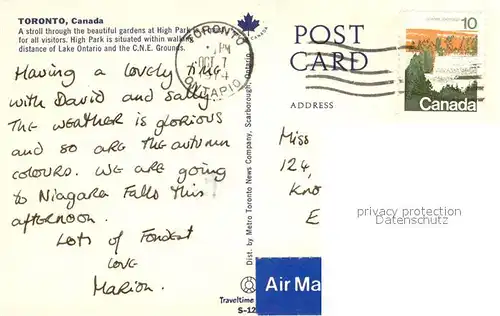 TORONTO, Canada
A stroll through the beautiful gardens at High Park is
for all visitors. High Park is situated within walking
distance of Lake Ontario and the C.N.E. Grounds.
Having a lovely time
with David and Sally.
The weather is glorious
and so are the autumn
colours. We are going
to Niagara Falls this
afternoon.
Lots of Fondest
love
Marion.
TORONTO
PM
OCT
ONTARIO
CANADA
Dist. by Metro Toronto News Company, Scarborough, Ontario
Traveltime
S-12
POST
CARD
ADDRESS
10
Canada
Miss
124,
Kno
E
privacy protection
Datenschutz
Air Ma